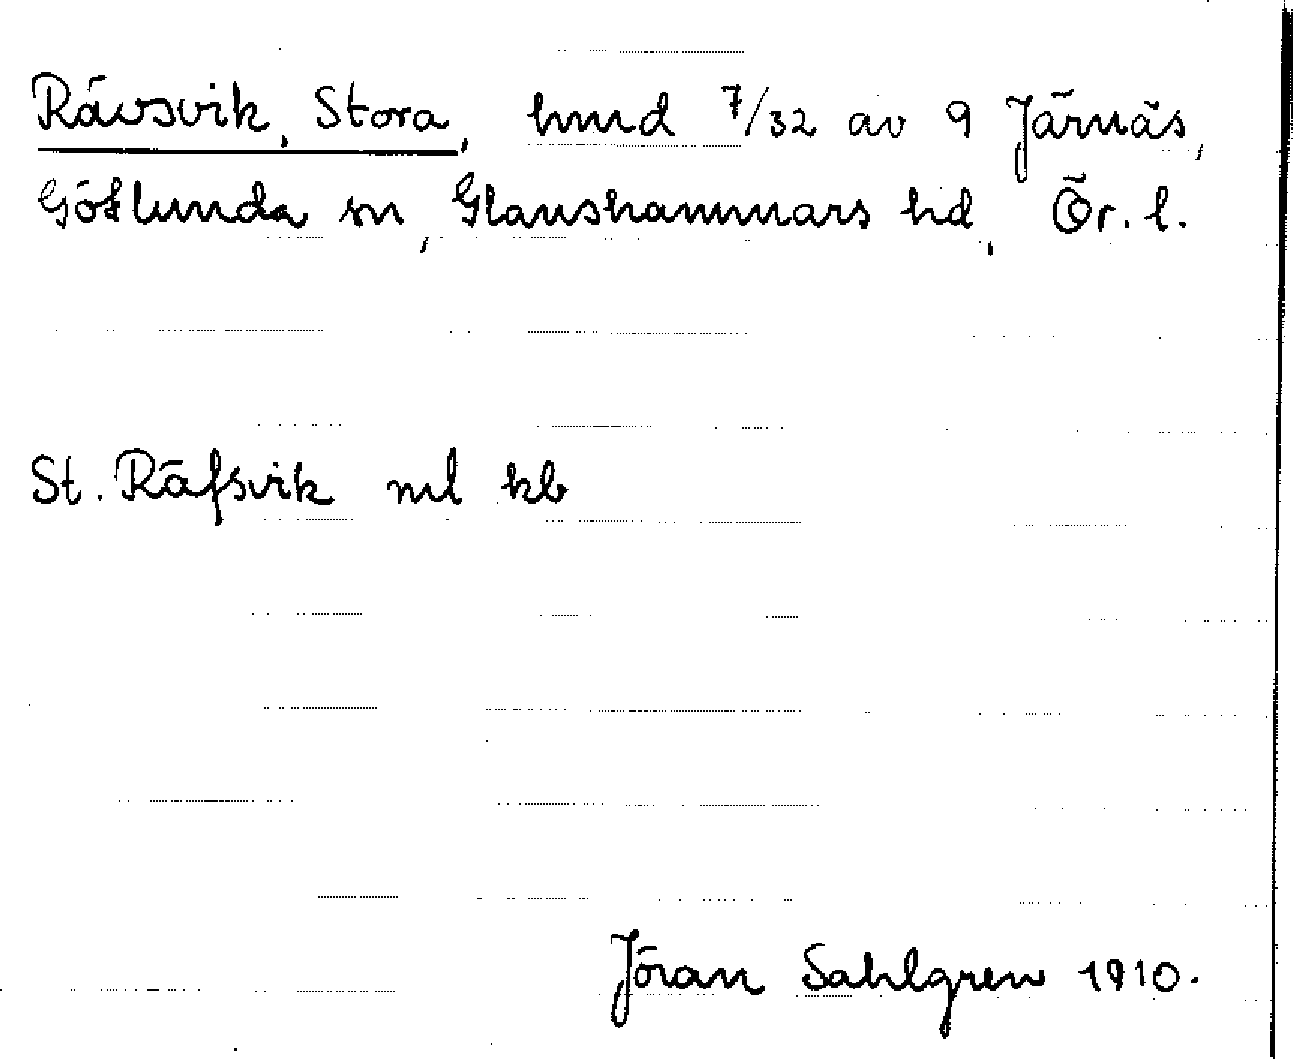 Rävsvik, Stora, hmd 7/32 av 9 Järnäs,
Götlunda sn, Glanshammars hd, Ör. l.
St. Räfsvik ml kb
Jöran Sahlgren 1910.